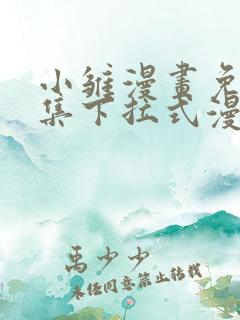 小雏漫畫免
集下拉式漫
禹少少
未经同意禁止转载